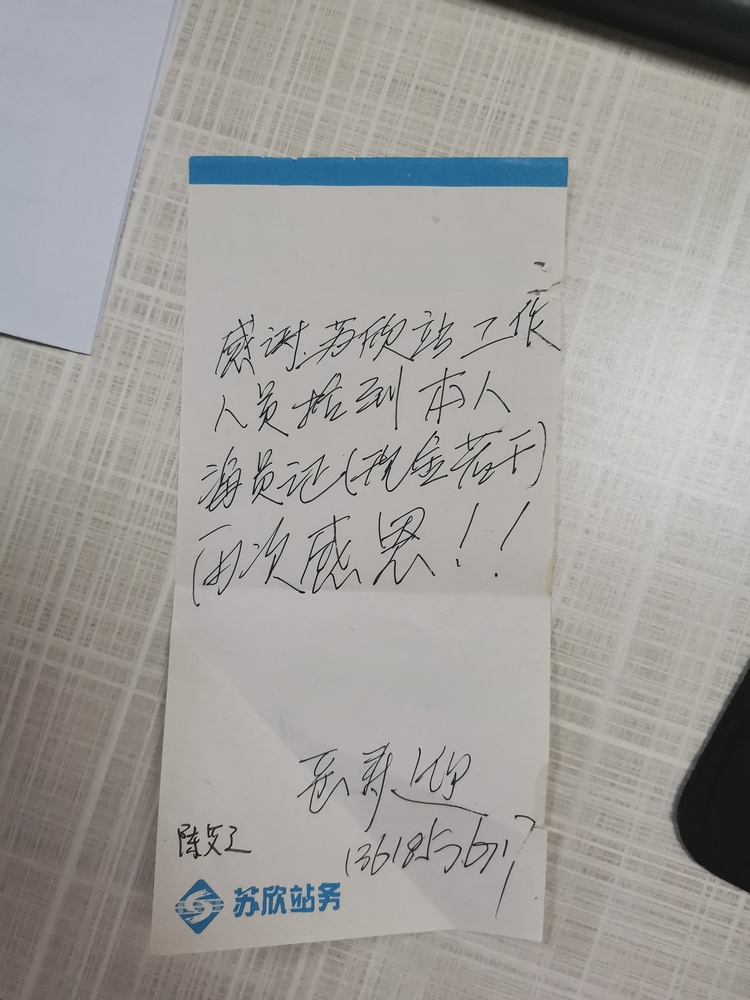 感谢苏欣站工作
人员拾到本人
海员证(现金若干)
再次感恩!!
陈
苏欣站务